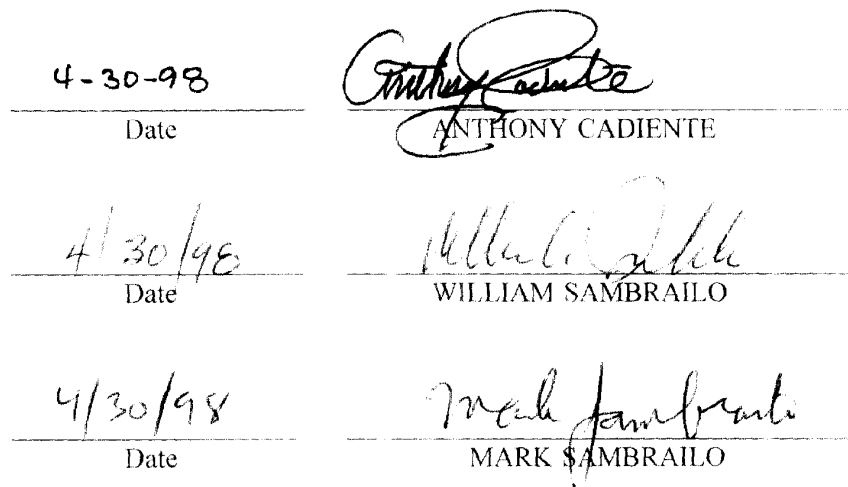 4-30-98 Anthony Cadiente
Date ANTHONY CADIENTE
4/30/98
Date WILLIAM SAMBRAILO
4/30/98 Mark Sambrailo
Date MARK SAMBRAILO